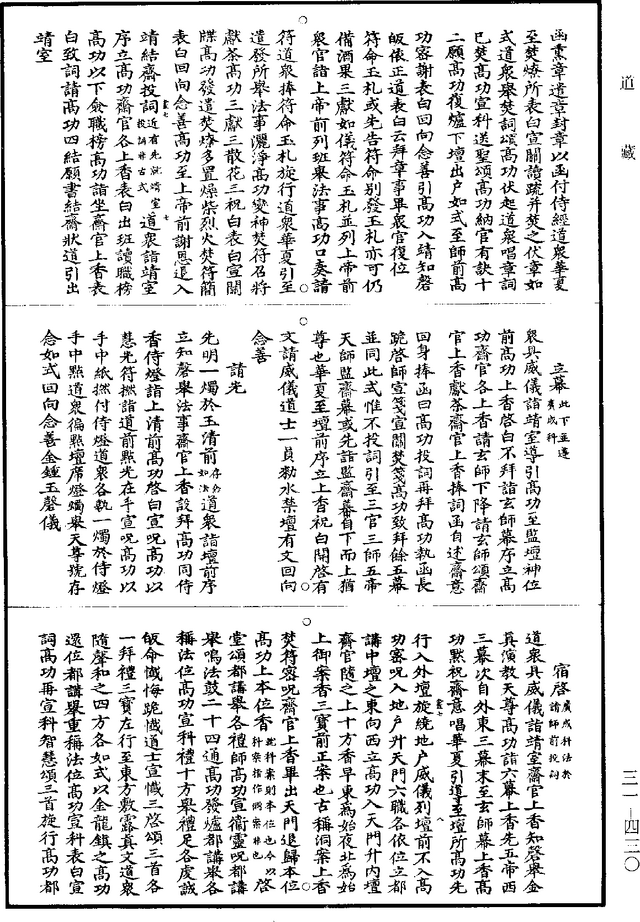 道藏
三一—四三〇
函熏章遣章封章以函付侍經道衆華夏
至焚燎所表白宣關請疏并焚之伏章如
式道衆舉焚詞頌高功伏起道衆唱章詞
已焚高功宣科送聖頌高功納官有訣十
二願高功復爐下壇出户如式至師前高
功容謝表白回向念善引高功入靖知磬
皈依正道表白云拜章事畢衆官復位
符命玉札或先告符命别發玉札亦可仍
備酒果三獻如儀符命玉札並列上帝前
衆官詣上帝前列班舉法事高功口奏請
符道衆捧符命玉札旋行道衆華夏引至
遣發所舉法事灑淨高功變神焚符召將
獻茶高功三獻三散花三祝白表白宣關
牒高功發遣焚燎多置燥柴烈火焚符簡
表白回向念善高功至上帝前謝恩退入
靖結齋投詞近有先就靖室投詞非古式道衆詣靖室
序立高功齋官各上香表白出班讀職榜
高功以下僉職榜高功詣坐齋官上香表
白致詞請高功四結願書結齋狀道引出
靖室
立幕此下並遵廣成科
衆具威儀詣靖室導引高功至監壇神位
前高功上香啓白不拜詣玄師幕序立高
功齋官各上香請玄師下降請玄師頌齋
官上香獻茶齋官上香捧詞函自述齋意
回身捧函曰高功投詞再拜高功執函長
跪啓師宣箋宣關焚箋高功致拜餘五幕
並同此式惟不投詞引至三官三師五帝
天師監齋幕或先詣監齋幕自下而上猶
尊也華夏至壇前序立上香祝白開啓有
文請威儀道士一員勑水禁壇有文回向
念善
請光
先明一燭於玉清前存如法道衆詣壇前序
立知磬舉法事齋官上香設拜高功同侍
香侍燈詣上清前高功啓白宣呪高功以
慧光符撚詣道前點光在手宣呪高功以
手中紙撚付侍燈道衆各執一燭於侍燈
手中點道衆徧點壇席燈燭舉天尊號存
念如式回向念善金鍾玉磬儀
宿啓廣成科法於請師前投詞
道衆具威儀詣靖室齋官上香知磬舉金
真演教天尊高功詣六幕上香先五帝西
三幕次自外東三幕末至玄師幕上香高
功默祝齋意唱華夏引導至壇所高功先
行入外壇旋繞地户威儀列壇前不入高
功密呪入地户升天門六職各依位立都
講中壇之東向西立高功入天門升内壇
齋官隨之上十方香早東爲始夜北爲始
上御案香三寶前正案也古稱洞案上香
焚符密呪齋官上香畢出天門退歸本位
高功上本位香啓
堂頌都講舉各禮師高功宣衞靈呪都講
舉鳴法鼓二十四通高功發爐都講舉各
稱法位高功宣科禮十方舉禮足各虔誠
皈命懺悔跪懺道士宣懺三啓頌三首各
一拜禮三寶左行至東方敷露真文道衆
隨聲和之四方各如式以金龍鎮之高功
還位都講舉重稱法位高功宣科表白宣
詞高功再宣科智慧頌三首旋行高功都